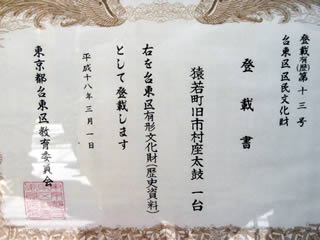 登載有(歴)第十三号
台東区区民文化財
登載書
猿若町旧市村座太鼓 一台
右を台東区有形文化財(歴史資料)
として登載します
平成十八年三月一日
東京都台東区教育委員会